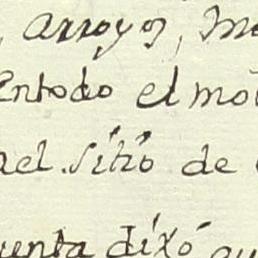 , arroyos, mo
entodo el mo
ael sitio de
uenta dixó qu